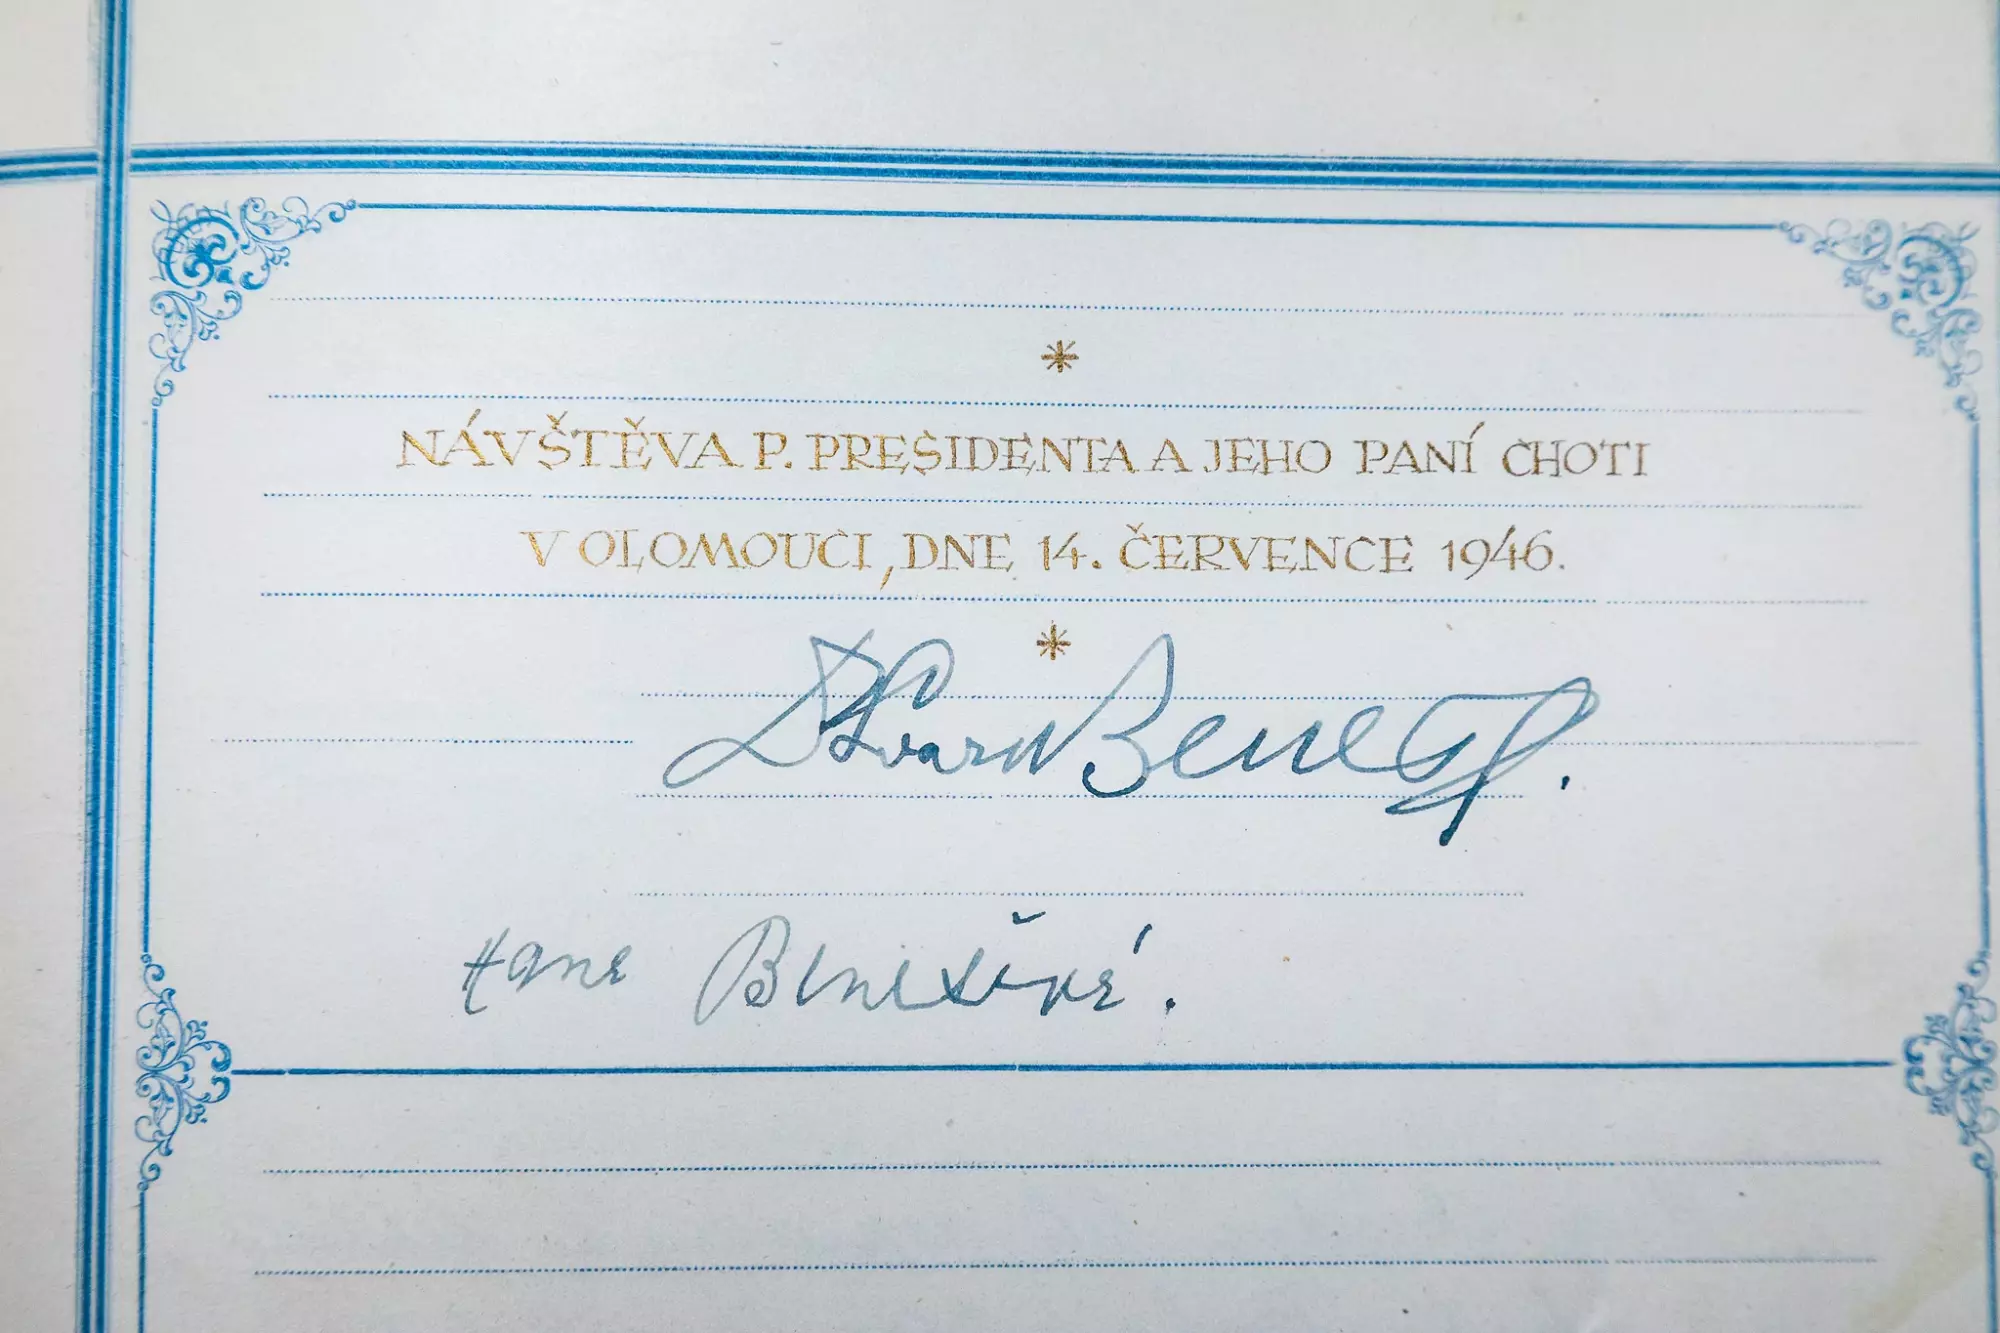 *
NÁVŠTĚVA P. PRESIDENTA A JEHO PANÍ CHOTI
V OLOMOUCI, DNE 14. ČERVENCE 1946.
*
Dr Edvard Beneš.
Hana Benešová.